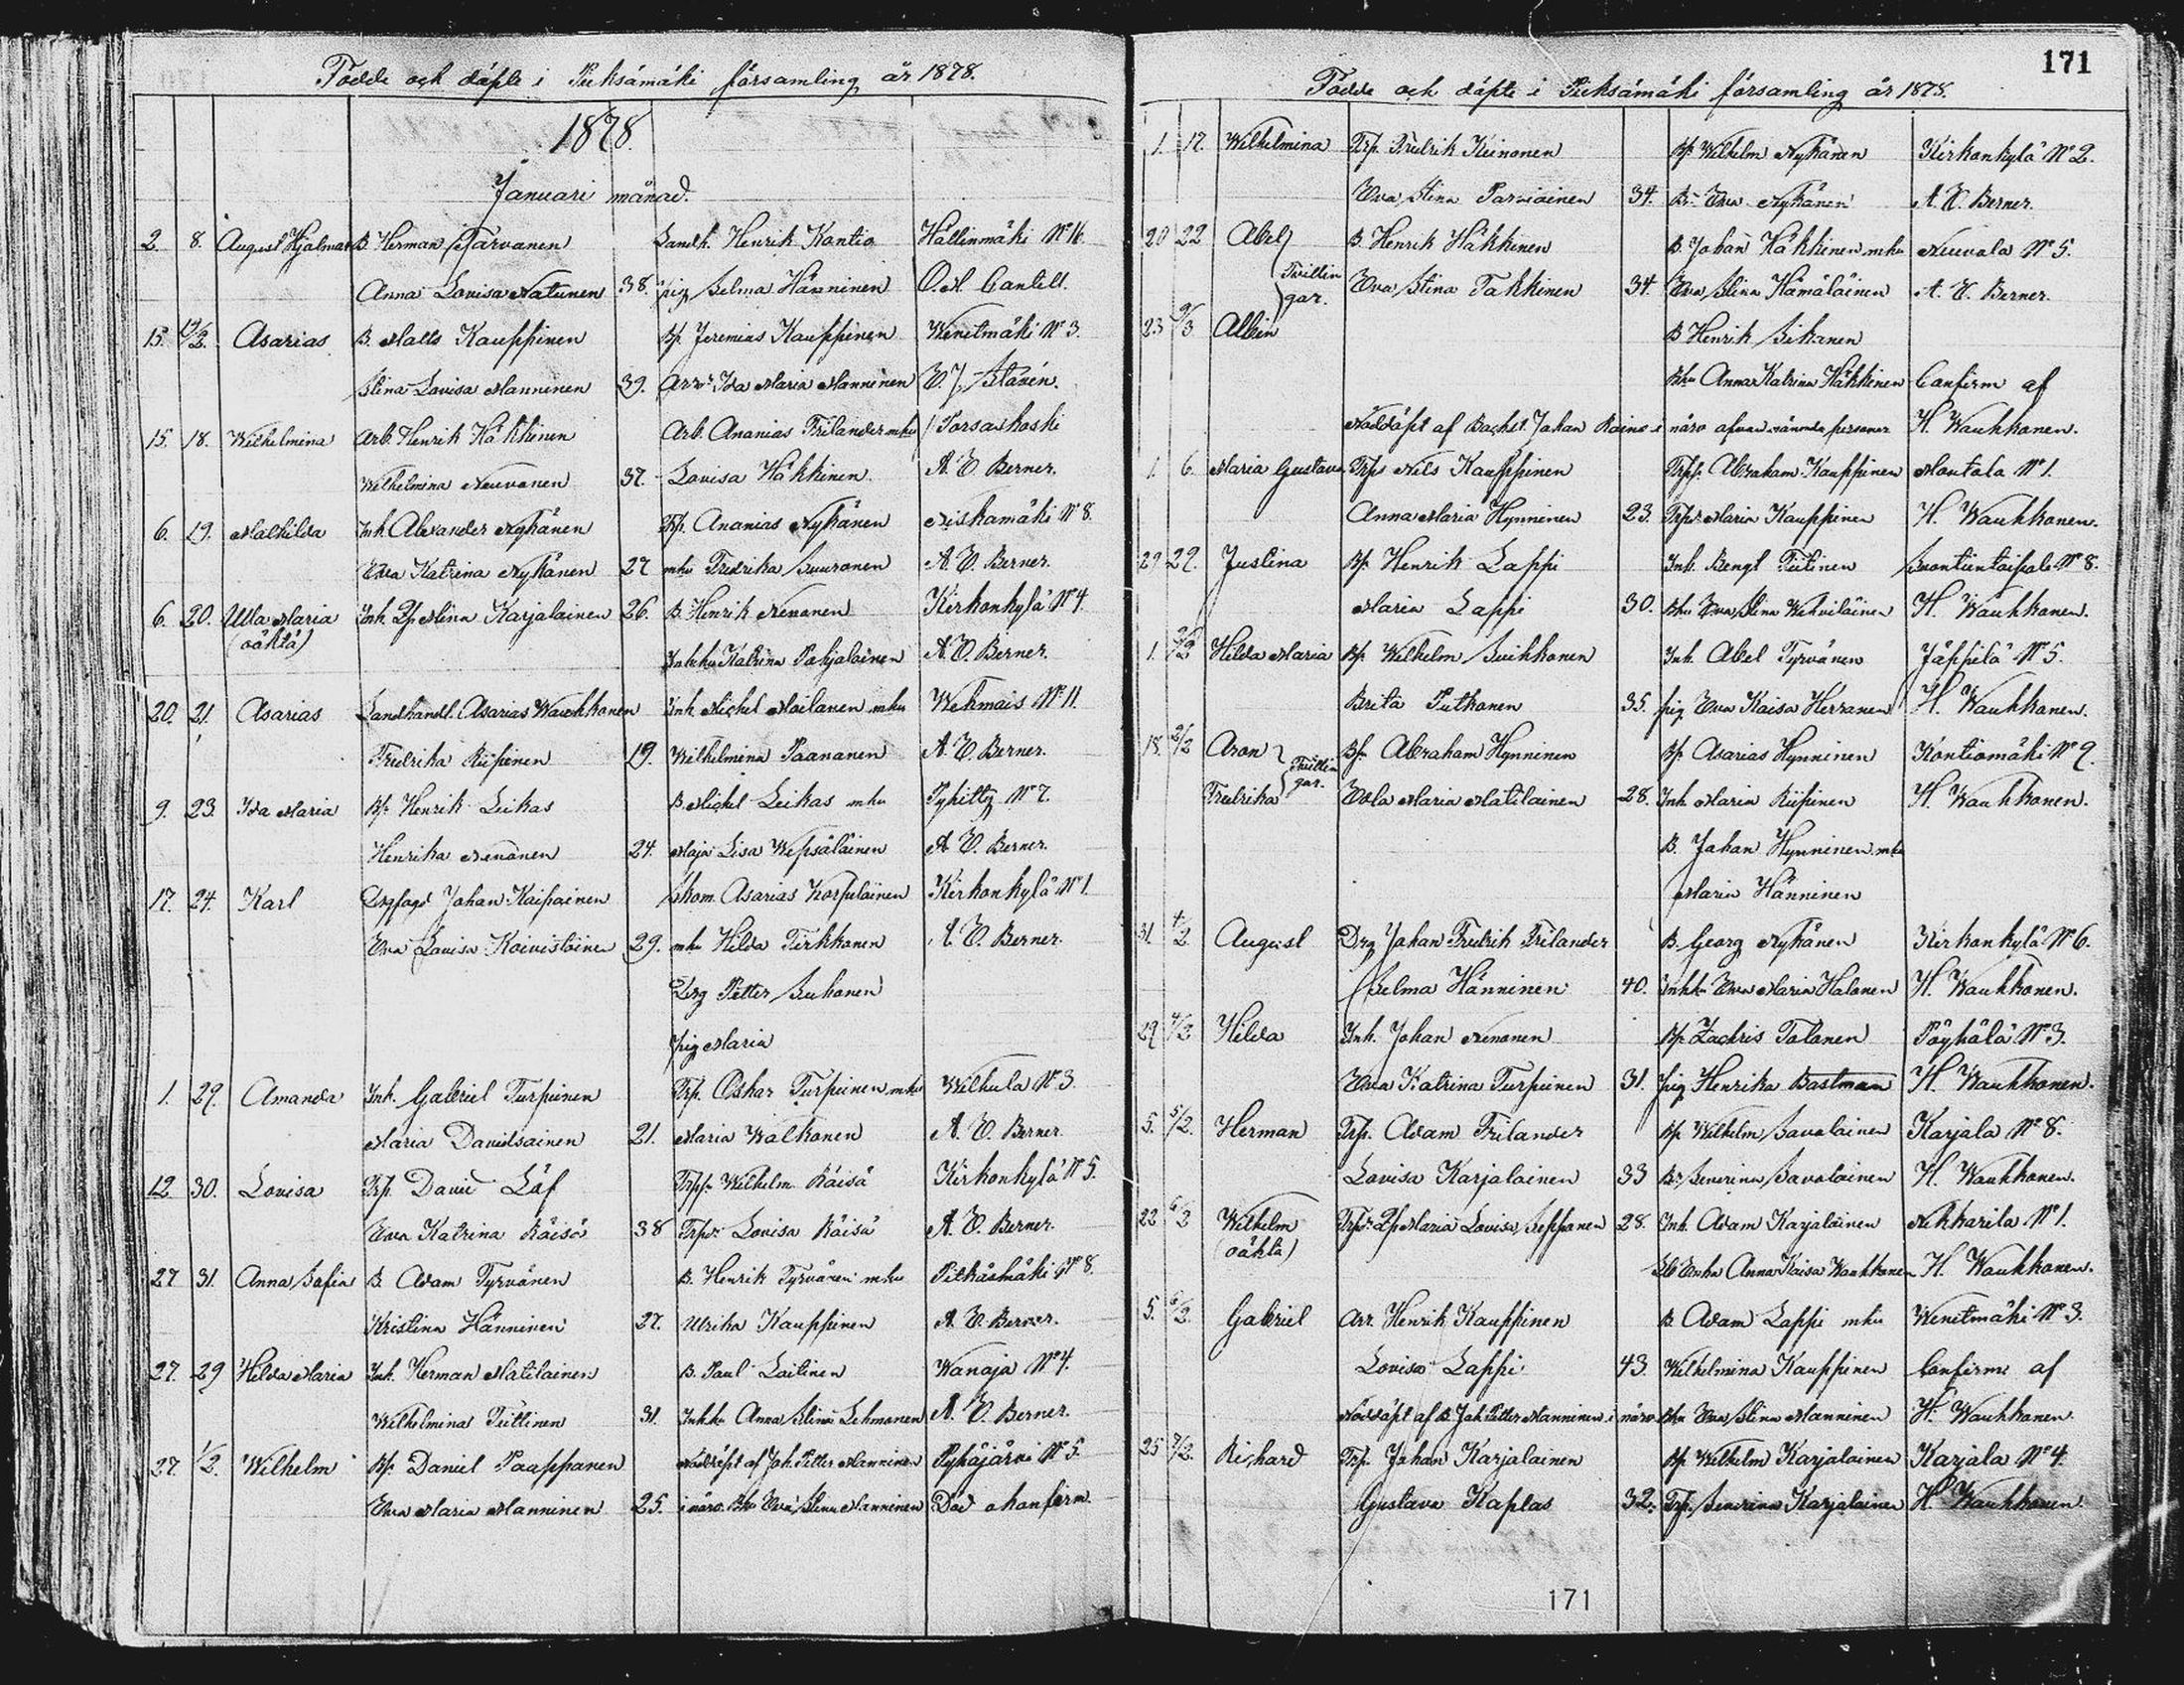 Födde och döpte i Pieksämäki församling år 1878.
1878.
Januari månad.
2. 8. August Hjalmar B. Herman Tarvanen Landh. Henrik Kontio Hällinmäki No 16
Anna Lovisa Natunen 38. pig Selma Hänninen O. M. Cantell.
15. 12/2. Asarias B. Matts Kauppinen Bp. Jeremias Kauppinen Wenetmäki No 3.
Stina Lovisa Manninen 39. Arr. Ida Maria Manninen E. J. Stavén.
15. 18. Wilhelmina Arb. Henrik Häkkinen Arb. Ananias Frilander mhu Porsaskoski
Wilhelmina Neuvonen 37. Lovisa Häkkinen A. E. Berner.
6. 19. Mathilda Inh. Alexander Nykänen Trp. Ananias Nykänen Niskamäki No 8.
Eva Katrina Nykänen 27 mhu Fredrika Suuronen A. E. Berner.
6. 20. Ulla Maria Inh. Dr Stina Karjalainen 26. B. Henrik Nenonen Kirkonkylä No 4.
(oäkta) Inhhu Katrina Pakjalainen A. E. Berner.
20. 21. Asarias Landhandl. Asarias Wauhkonen Inh. Michel Moilanen mhu Wehmais No 11.
Fredrika Riipinen 19. Wilhelmina Paananen A. E. Berner.
9. 23. Ida Maria Bp. Henrik Leikas B. Michel Leikas mhu Pykitty No 7.
Henrika Nenonen 24. Maja Lisa Wepsäläinen A. E. Berner.
17. 24. Karl Johan Kaipainen Skom. Asarias Korpulainen Kirkonkylä No 1.
Eva Lovisa Koivistoinen 29. mhu Hilda Pirkkonen A. E. Berner.
Drg Petter Suhonen
pig Maria
1. 29. Amanda Inh. Gabriel Turpeinen Trp. Oskar Turpeinen mhu Wilhula No 3
Maria Davidsainen 21. Maria Walkonen A. E. Berner.
12. 30. Lovisa Trp. David Löf Trpp. Wilhelm Räisä Kirkonkylä No 5.
Eva Katrina Räisä 38 Trpdr Lovisa Räisä A. E. Berner.
27. 31. Anna Sofia B. Adam Tyrvänen B. Henrik Tyrvänen mhu Pitkäsmäki No 8.
Kristina Hänninen 27. Ulrika Kauppinen A. E. Berner.
27. 29 Hilda Maria Inh. Herman Matilainen B. Paul Laitinen Wanaja No 4.
Wilhelmina Tiittinen 31. Inhhu Anna Stina Lehmonen A. E. Berner.
27. 1/2. Wilhelm Bp. Daniel Paappanen Nöddöpt af Joh. Petter Manninen Pyhäjärvi No 5.
Eva Maria Manninen 25. i närv. Bhu Eva Stina Manninen Död okonfirm.
171
Födde och döpte i Pieksämäki församling år 1878.
1. 17. Wilhelmina Trp. Fredrik Keinonen Bp. Wilhelm Nykänen Kirkonkylä No 2.
Eva Stina Parviainen 34. Br. Eva Nykänen A. E. Berner.
20 22 Abel B. Henrik Häkkinen B. Johan Häkkinen mhu Neuvola No 5.
Tvillingar. Eva Stina Takkinen 34. Eva Stina Hämäläinen A. E. Berner.
23 9/3 Albin B Henrik Sikanen
Bhu Anna Katrina Häkkinen Confirm af
Nöddöpt af Bachst. Johan Roino i närv. ofvannämnda personer H. Wauhkonen.
1. 6. Maria Gustava Trps Nils Kauppinen Trpp. Abraham Kauppinen Montola No 1.
Anna Maria Hynninen 23. Trpdr Maria Kauppinen H. Wauhkonen.
29 29. Justina Bp. Henrik Lappi Inh. Bengt Tiitinen Suontientaipale No 8.
Maria Lappi 30. Bhu Eva Stina Wehviläinen H. Wauhkonen.
1. 2/2 Hilda Maria Bp. Wilhelm Suihkonen Inh. Abel Tyrvänen Jäppilä No 5.
Brita Putkonen 35. pig Eva Kaisa Herranen H. Wauhkonen.
18. 2/2 Aron Bp. Abraham Hynninen Bp. Asarias Hynninen Kontiomäki No 9.
Fredrika Tvillingar. Edla Maria Matilainen 28. Inh. Maria Riipinen H. Wauhkonen.
B. Johan Hynninen mhu
Maria Hänninen
31. 4/2 August Drg Johan Fredrik Frilander B. Georg Nykänen Kirkonkylä No 6.
Selma Hänninen 40. Inhhu Eva Maria Halonen H. Wauhkonen.
29 4/2 Hilda Inh. Johan Nenonen Bp. Zachris Tolonen Pöyhölä No 3.
Eva Katrina Turpeinen 31. pig Henrika Bastman H. Wauhkonen.
5. 5/2. Herman Trp. Adam Frilander Bp. Wilhelm Savolainen Karjala No 8.
Lovisa Karjalainen 33 Br Severina Savolainen H. Wauhkonen.
22 6/2 Wilhelm Trpdr Maria Lovisa Seppänen 28. Inh. Adam Karjalainen Nikkarila No 1.
(oäkta) Anna Kaisa Wauhkonen H. Wauhkonen.
5. 6/2. Gabriel Arr. Henrik Kauppinen B. Adam Lappi mhu Wenetmäki No 3.
Lovisa Lappi 43. Wilhelmina Kauppinen Confirm af
Nöddöpt af B. Joh. Petter Manninen i närv. Bhu Eva Stina Manninen H. Wauhkonen.
25 7/2. Richard Trp. Johan Karjalainen Bp. Wilhelm Karjalainen Karjala No 4.
Gustava Kaplas 32. Trp. Severina Karjalainen H. Wauhkonen.
171